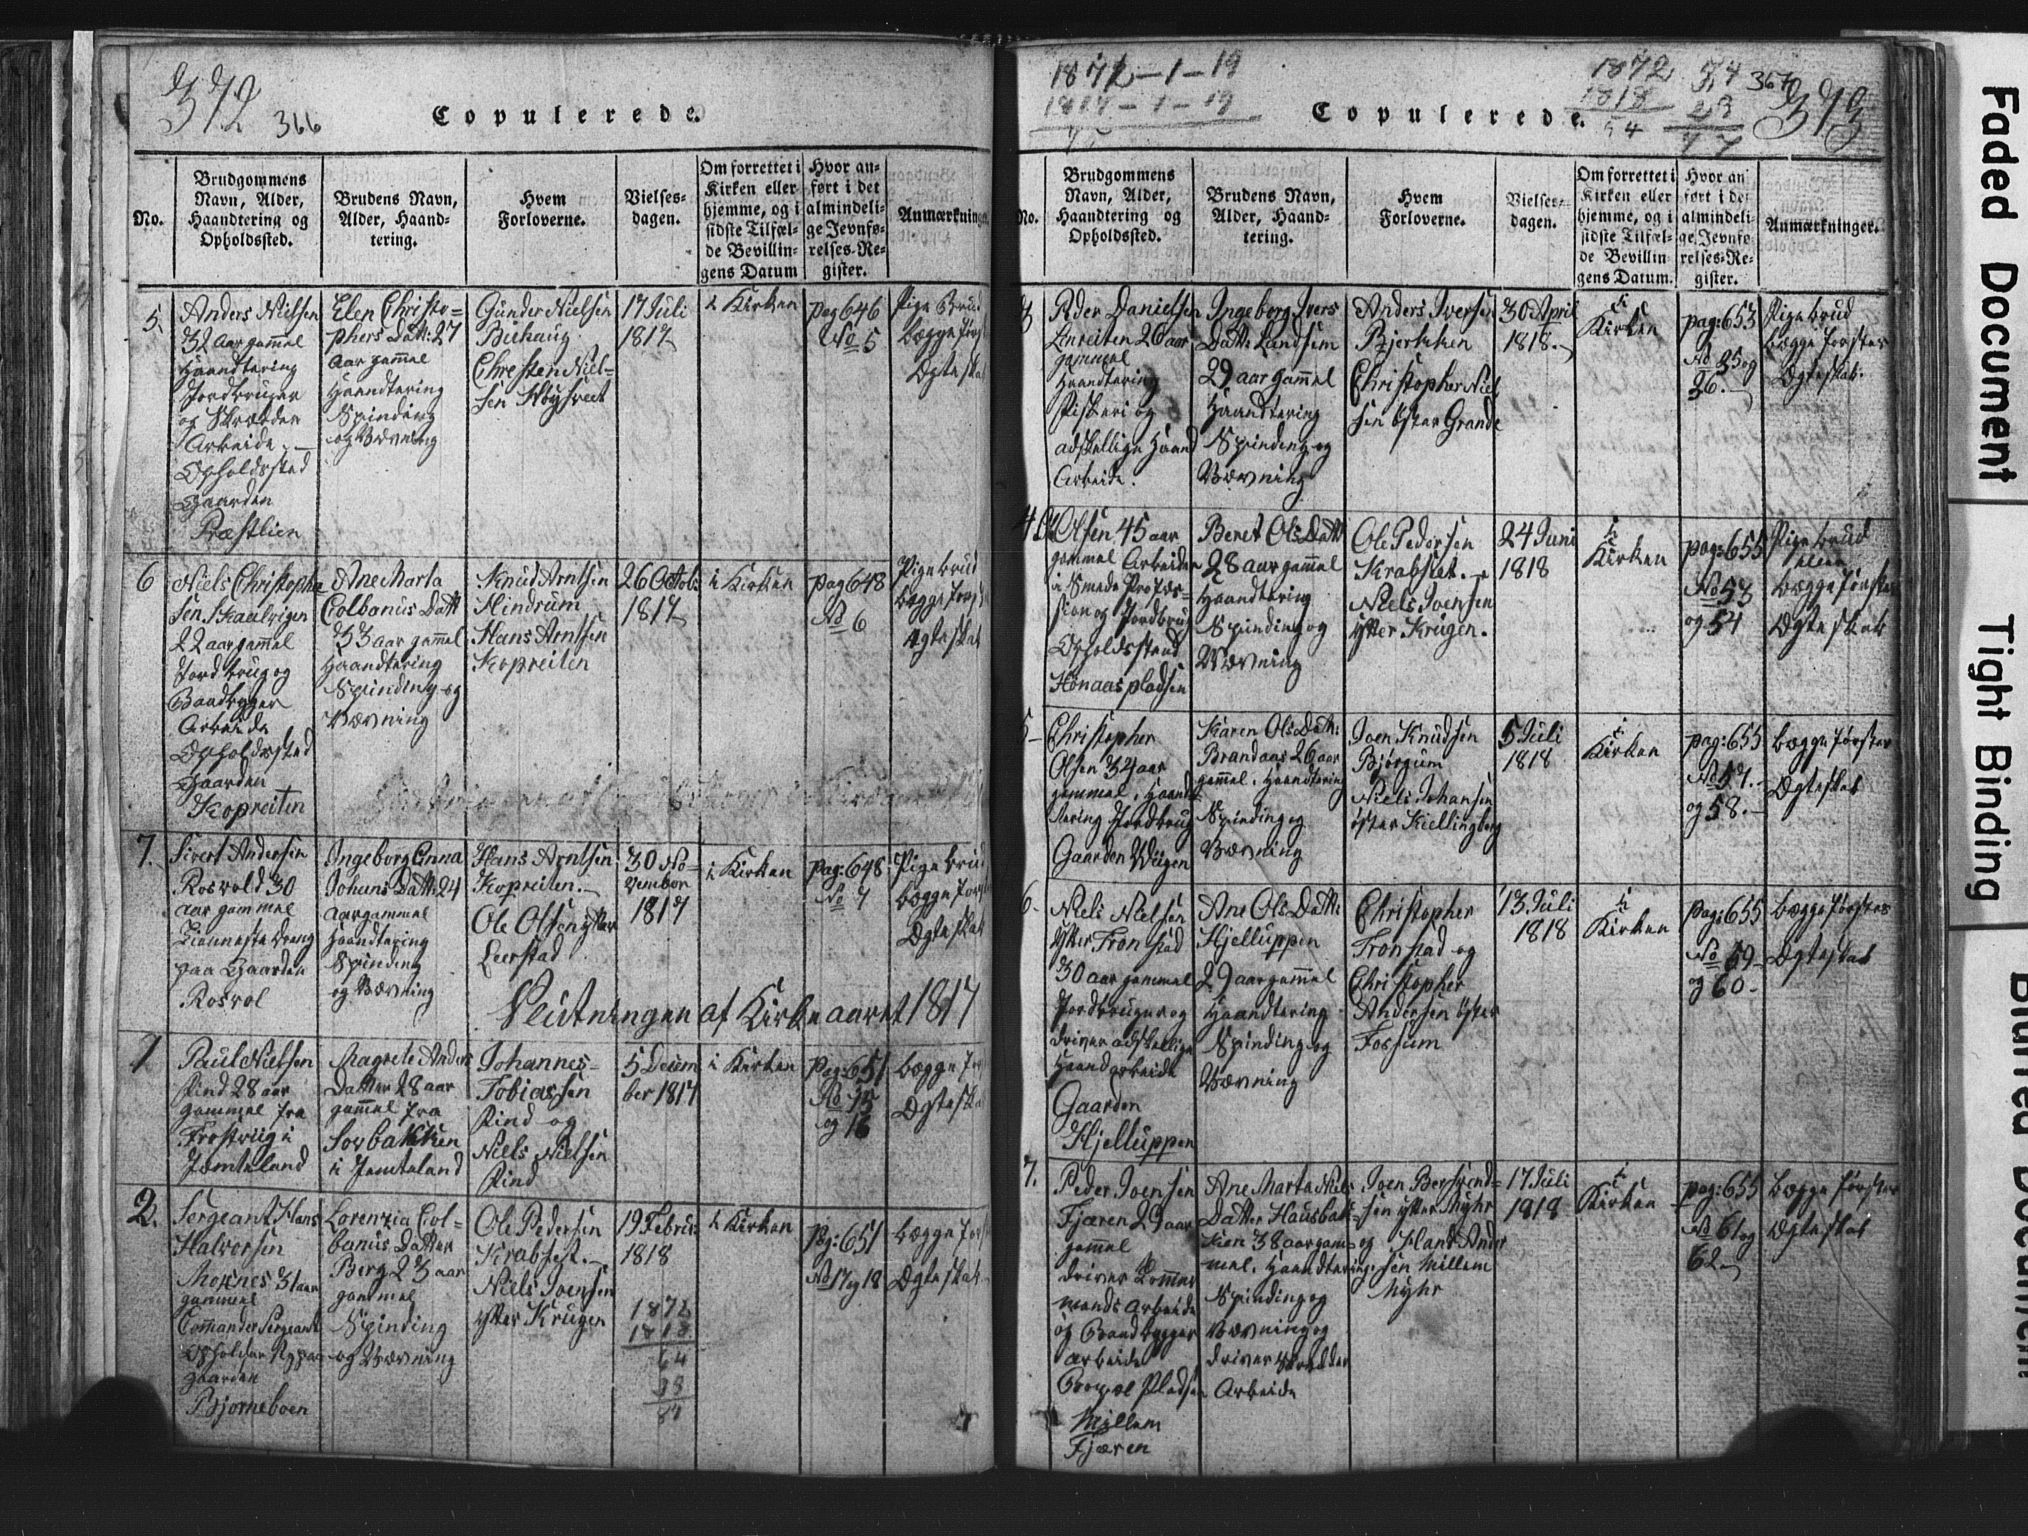 372
366
Copulerede.
No.
Brudgommens
Navn, Alder,
Haandtering og
Opholdssted.
Brudens Navn,
Alder, Haand-
tering.
Hvem
Forloverne.
Vielses-
dagen.
Om forrettet i
Kirken eller
hjemme, og i
sidste Tilfæl-
de Bevillin-
gens Datum
Hvor an-
ført i det
almindeli-
ge Jevnfø-
relses-Re-
gister.
Anmærkninger
5.
Anders Nielsen
32 Aar gammel
Haandtering
Jordbruger
og Skrædder
Arbeide. —
Opholdssted
Gaarden
Præstlien
Elen Christo-
phers Datt: 27
Aar gammel
Haandtering
Spinding
og Væwning
Gunder Nielsen
Biehaug
Christen Niel-
sen Høysveet
17 Juli
1817
i Kirken
pag 646
No 5
Pige Brud
begge første
Ægteskab
6
Niels Christophe
sen Skaalvigen
22 aar gammel
Jordbrug og
Baadbygger
Arbeide
Opholdssted
Gaarden
Kopreiten
Ane Marta
Colbanus Datt
33 aar gammel
Haandtering
Spinding og
Væwning
Knud Arntsen
Hindrum
Hans Arntsen
Kopreiten
26 Octob:
1817
i Kirken
pag 648
No 6
Pige brud
begge første
Ægteskab
7.
Sivert Andersen
Rosvold 30
aar gammel
Tienneste Dreng
paa Gaarden
Rosvol
Ingeborg Anna
Johans Datt: 24
aar gammel
Haandtering
Spinding
og Væwning
Hans Arntsen
Kopreiten. —
Ole Olsen ytter
Leerstad
30 No-
vember
1817
i Kirken
pag: 648
No 7
Pige brud
begge første
Ægteskab
Slutningen af Kirkeaaret 1817
1
Paul Nielsen
Rind 28 aar
gammel fra
Frostviig i
Jemteland
Magrete Anders
Datter 28 aar
gammel fra
Sorbakken
i Jemteland
Johannes
Tobiassen
Rind og
Niels Nielsen
Rind
5 Decem
ber 1817
i Kirken
Pag: 651
No 15
og 16
begge første
Ægteskab
2.
Sergeant Hans
Halvorsen
Moxnes 31 aar
gammel
Commander Sergeant
Gaarden
Bjørneboen
Lorenzia Col-
banus Datter
Berg 23 aar
gammel
Spinding
og Væwning
Ole Pedersen
Krabset. —
Niels Joensen
ytter Krugen
19 Februar
1818
1872
1818
i Kirken
Pg: 651
No 17 og 18
begge første
Ægteskab
1872 - 1 - 19
1817 - 1 - 19
Copulerede.
1872
1818
54
54
23
77
367
373
No.
Brudgommens
Navn, Alder,
Haandtering og
Opholdssted.
Brudens Navn,
Alder, Haand-
tering.
Hvem
Forloverne.
Vielses-
dagen.
Om forrettet i
Kirken eller
hjemme, og i
sidste Tilfæl-
de Bevillin-
gens Datum.
Hvor an-
ført i det
almindeli-
ge Jevnfø-
relses-Re-
gister.
Anmærkninger.
3
Peder Danielsen
Leereiten 26 aar
gammel
Haandtering
Fiskeri og
adskellige Haand
Arbeide.
Ingeborg Ivers
Datt: Landsem
29 aar gammel
Haandtering
Spinding og
Væwning
Anders Iversen
Bjerkken
Christopher Niel
sen Øster Grande
30 April
1818. —
i
Kirken
pag: 653
No 35 og
36. —
Pige brud
begge første
Ægteskab.
4
Ole Olsen 45 aar
gammel Arbeider
i Smede Profes-
sion og Jordbrug
Opholdsstæd
Hønaas pladsen
Beret Ols Datt
28 aar gammel
Haandtering
Spinding og
Væwning
Ole Pedersen
Krabset. —
Niels Joensen
ytter Krugen.
24 Juni
1818
i
Kirken
pag: 655
No 53
og 54
Pige brud
begge første
Ægteskab
5
Christopher
Olsen 34 aar
gammel, Haand
tering Jordbrug
Gaarden Wiigen
Karen Ols Datt:
Brandaas 26 aar
gammel, Haandtering
Spinding og
Væwning
Joen Knudsen
Bjørgum
Niels Johansen
øster Kiellingberg
5 Juli
1818
i
Kirken
pag: 655
No 57.
og 58. —
begge første
Ægteskab
6.
Niels Nielsen
ytter Fronstad
30 aar gammel
Jordbruger og
driver adskellige
Haandarbeide
Gaarden
Hjelluppen
Ane Ols Datt:
Hjelluppen
29 aar gammel
Haandtering
Spinding og
Væwning
Christopher
Fronstad og
Christopher
Andersen øster
Fossum
13 Juli
1818
i
Kirken
pag: 655
No 59
og 60 —
begge første
Ægteskab
7.
Peder Joensen
Fjæren 29 aar
gammel
driver Tømmer
mands Arbeide
og Baadbygger
arbeide
Pladsen
Millem
Fjæren
Ane Marta Niels
Datter Hausbak-
ken 38 aar gam-
mel. Haandtering
Spinding og
Væwning og
driver Skrædder
Arbeide
Joen Bersvend-
sen ytter Myhr
og Iland Ander
sen Millem
Myhr
17 Juli
1818
i
Kirken
pag: 655
No 61 og
62 —
begge første
Ægteskab
Faded Document
Tight Binding
Blurred Document